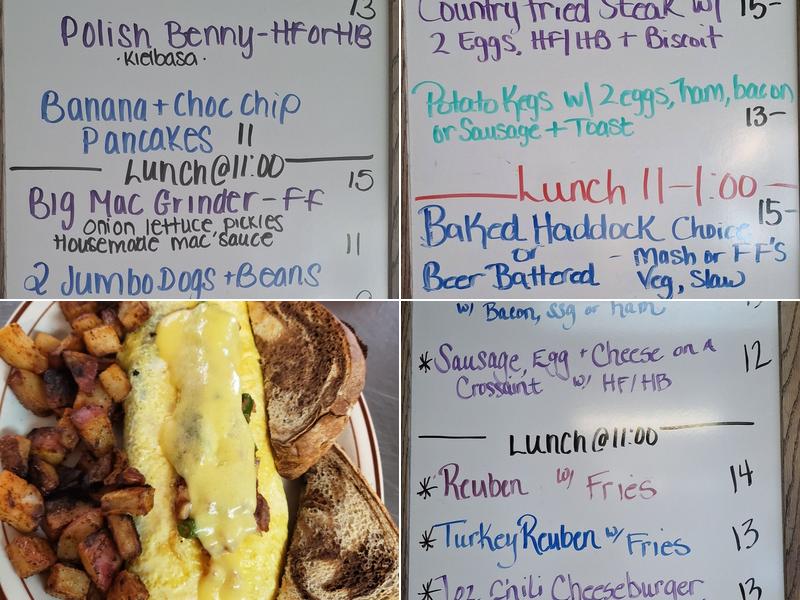 13
Polish Benny-HForHB
·Kielbasa·
Banana+Choc Chip
Pancakes 11
Lunch@11:00
Big Mac Grinder-FF 15
onion lettuce pickles
Housemade mac sauce
2 Jumbo Dogs +Beans 11
Country fried Steak w/ 15-
2 Eggs, HF/HB + Biscuit
Potato Kegs w/ 2eggs, ham, bacon
or Sausage + Toast 13-
Lunch 11-1:00
Baked Haddock Choice 15-
or - Mash or FF's
Beer Battered Veg, Slaw
w/ Bacon, ssg or ham
*Sausage, Egg + Cheese on A 12
Crossaint w/ HF/HB
Lunch@11:00
*Reuben w/ Fries 14
*Turkey Reuben w/ Fries 13
*7oz Chili Cheeseburger 13